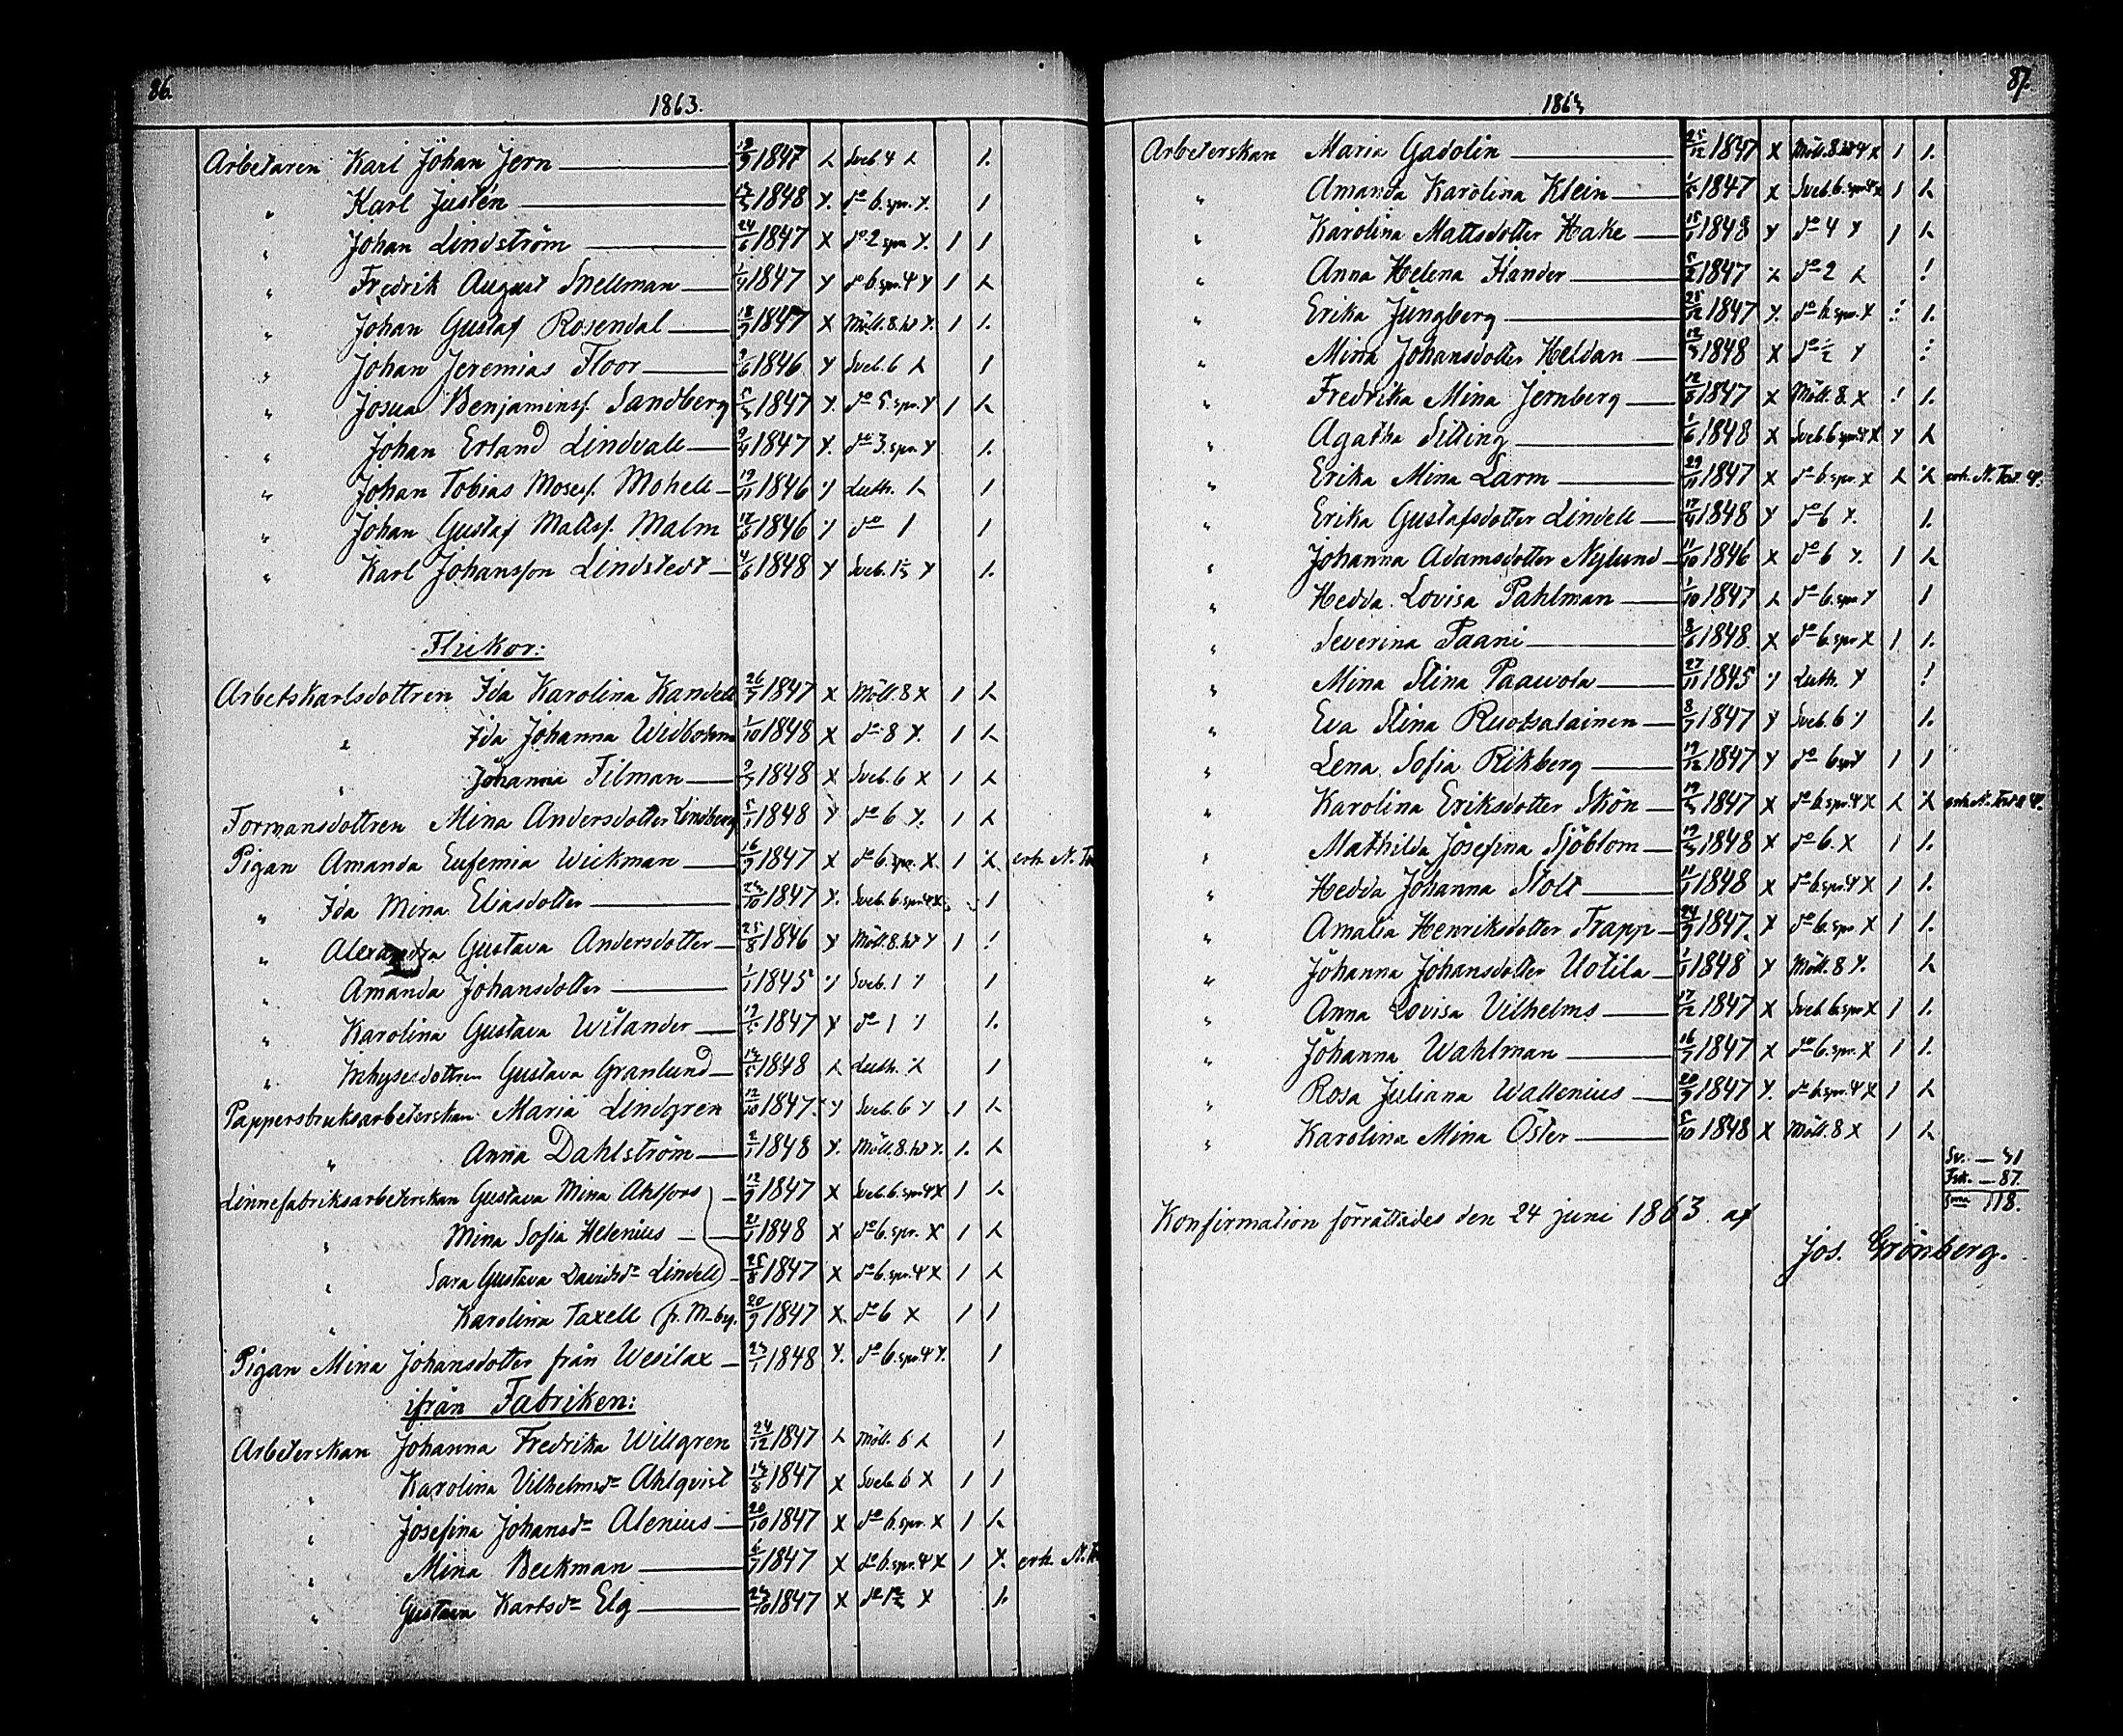 86.
1863.
Arbetaren Karl Johan Jern 1847 Sveb. 4
" Karl Justén 1848 do 6. spr.
" Johan Lindström 24/6 1847 do 2 spr.
" Fredrik August Snellman 1847 do 6 spr. 4
" Johan Gustaf Rosendal 18/7 1847 Möll. 8. ht
" Johan Jeremias Floor 1846 Sveb. 6
" Josua Benjaminsf. Sandberg 5/3 1847 do 5. spr.
" Johan Erland Lindvall 1847 do 3. spr.
" Johan Tobias Mosesf. Mohell 19/11 1846 Luth.
" Johan Gustaf Mattsf. Malm 1846 do
" Karl Johansson Lindstedt 4/6 1848 Sveb.
Flickor:
Arbetskarlsdottren Ida Karolina Kandell 1847 Möll. 8
" Ida Johanna Widbohm 1/10 1848 do 8
" Johanna Filman 1848 Sveb. 6
Formansdottren Mina Andersdotter Lindberg 5/1 1848 do 6
Pigan Amanda Eufemia Wickman 16/9 1847 do 6. spr. erh. N.
" Ida Mina Eliasdotter 23/10 1847 Sveb. 6. spr. 4
" Alexandra Gustava Andersdotter 25/8 1846 Möll. 8. ht
" Amanda Johansdotter 1/1 1845 Sveb. 1
" Karolina Gustava Wilander 1847 do 1
" Inhysesdottren Gustava Granlund 1848 Luth.
Pappersbruksarbeterskan Maria Lindgren 12/10 1847 Sveb. 6
" Anna Dahlström 2/1 1848 Möll. 8. ht
Linnefabriksarbeterskan Gustava Mina Ahlfors 12/9 1847 Sveb. 6. spr. 4
" Mina Sofia Helenius 21/1 1848 do 6. spr.
" Sara Gustava Davidsdr Lindell 25/8 1847 do 6. spr. 4
" Karolina Taxell fr. M-by. 20/9 1847 do 6
Pigan Mina Johansdotter från Wesilax 23/1 1848 do 6. spr. 4
ifrån Fabriken:
Arbeterskan Johanna Fredrika Willgren 24/12 1847 Möll. 6
" Karolina Vilhelmsdr Ahlqvist 13/5 1847 Sveb. 6
" Josefina Johansdr Alenius 20/10 1847 do 6. spr.
" Mina Beckman 6/7 1847 do 6. spr. 4 erh. N.
" Gustava Karlsdr Elg 23/10 1847 do
87.
1863
Arbeterskan Maria Gadolin 25/12 1847 Möll. 8. ht 4
" Amanda Karolina Klein 1847 Sveb. 6. spr. 4
" Karolina Mattsdotter Hake 1848 do 4
" Anna Helena Hander 1847 do 2
" Erika Jungberg 25/12 1847 do 6. spr.
" Mina Johansdotter Heldan 12/3 1848 do
" Fredrika Mina Jernberg 1847 Möll. 8.
" Agatha Silting 1/6 1848 Sveb. 6 spr. 4
" Erika Mina Larm 29/11 1847 do 6. spr. erh. N. Test. 4.
" Erika Gustafsdotter Lindell 17/4 1848 do 6
" Johanna Adamsdotter Nylund 11/10 1846 do 6
" Hedda Lovisa Pahlman 1/10 1847 do 6. spr.
" Severina Paani 8/6 1848 do 6. spr.
" Mina Stina Paawola 27/11 1845 Luth.
" Eva Stina Ruotsalainen 8/7 1847 Sveb. 6
" Lena Sofia Rikberg 19/12 1847 do 6 spr.
" Karolina Eriksdotter Skön 19/3 1847 do 6. spr. 4 erh. N. Test. 4.
" Mathilda Josefina Sjöblom 19/3 1848 do 6.
" Hedda Johanna Stolt 11/1 1848 do 6. spr. 4
" Amalia Henriksdotter Trapp 24/9 1847 do 6. spr.
" Johanna Johansdotter Uotila 1/1 1848 Möll. 8
" Anna Lovisa Vilhelms 17/12 1847 Sveb. 6. spr.
" Johanna Wahlman 16/7 1847 do 6. spr.
" Rosa Juliana Wallenius 20/9 1847 do 6. spr. 4
" Karolina Mina Öster 5/10 1848 Möll. 8
Sv. — 31
Fsk. — 87.
Sma 118.
Konfirmation förrättades den 24 juni 1863. af
Jos. Grönberg.